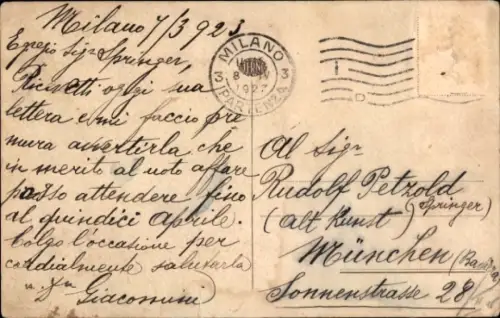 Milano 7/3 923
Egregio Sigr Springer,
Ricevetti oggi sua
lettera e mi faccio pre
mura avvertirla che
in merito al noto affare
posso attendere fino
al quindici Aprile.
Colgo l'occasione per
cordialmente salutarla
Giacomini
MILANO
PARTENZA
3 3
8
192
Al Sigr
Rudolf Petzold
(Alt Kunst) (Springer)
München
Sonnenstrasse 28/